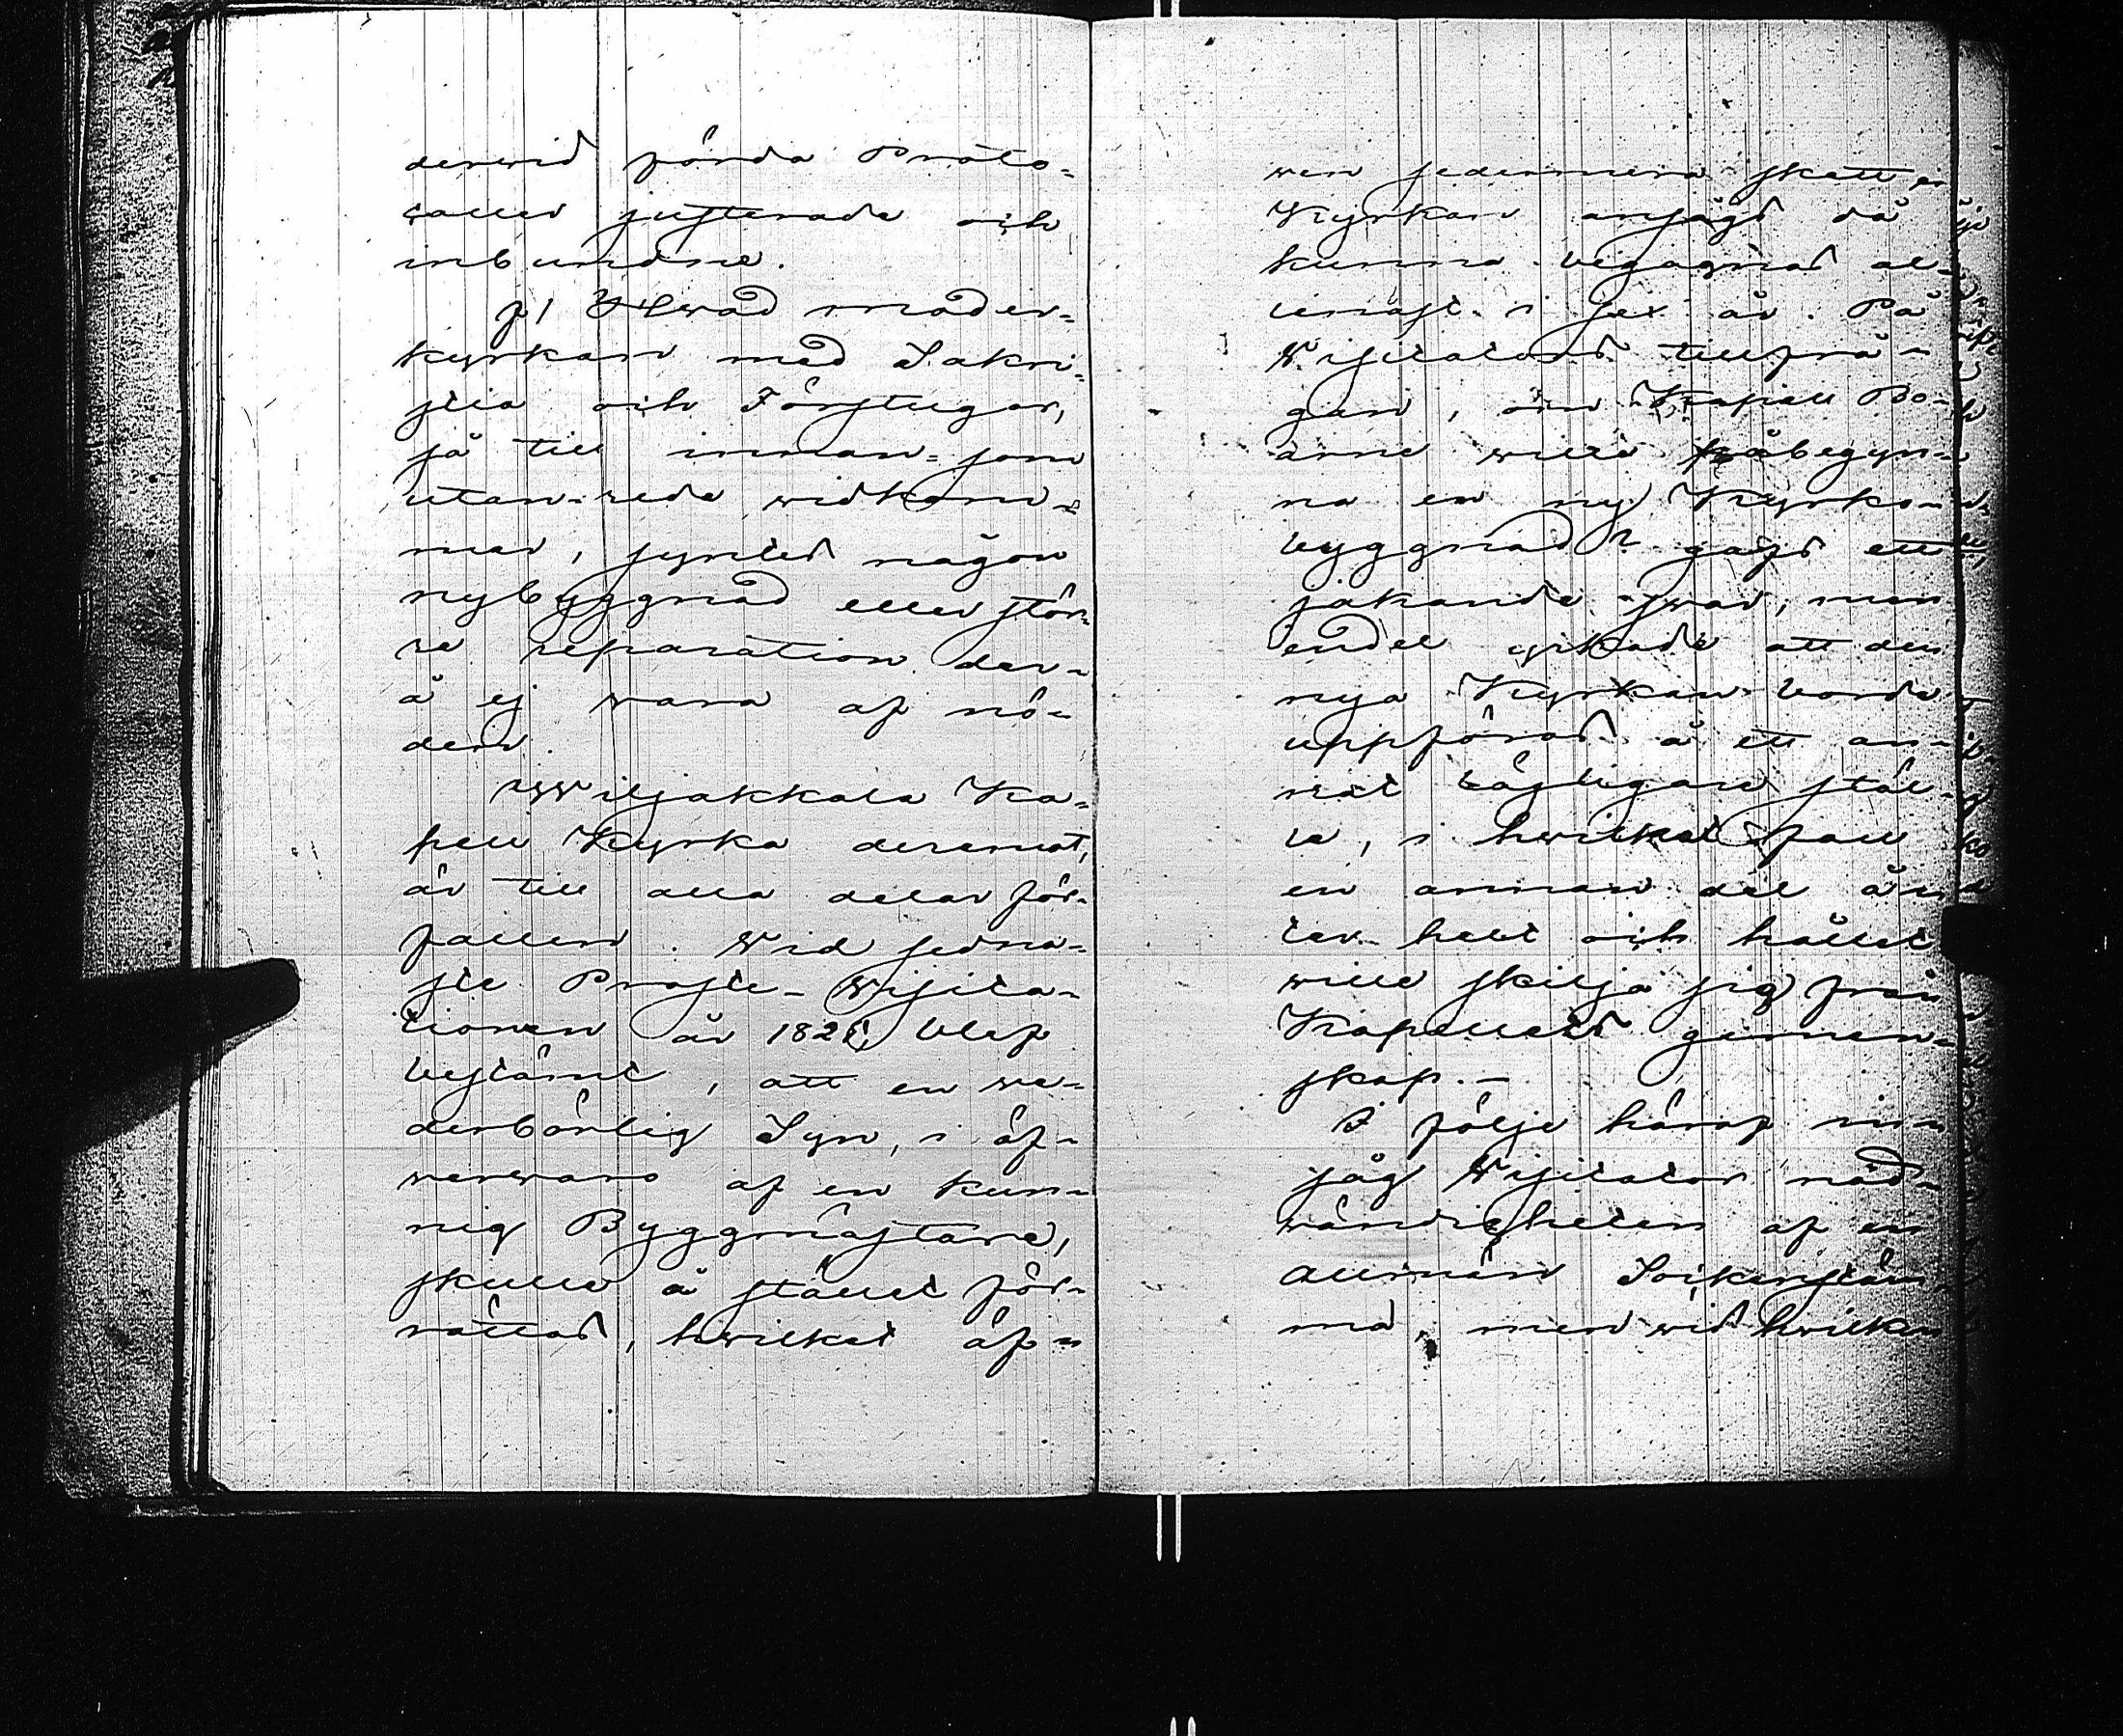 derwid förda Proto-
coller justerade och
inbundne.
f/ Hwad moder-
kyrkan med Sakri-
stia och Förstugor,
så till innan- som
utan-rede widkom-
mer, syntes någon
nybyggnad eller stör-
re reparation der-
å ej wara af nö-
den.
Wiljakkala Ka-
pell Kyrka deremot,
är till alla delar för-
fallen. Wid sedna-
ste Prosts-Visita-
tionen år 182 blef
bestämt, att en we-
derbörlig Syn, i öf-
werwaro af en kun-
nig Byggmästare,
skulle å stället för-
rättas, hwilket äf-
wen sedermera skett
Kyrkan ansågs då
kunna begagnas al-
lenast i sex år. På
Visitators tillfrå-
gan, om Kapell Bo-
arne wille påbegyn-
na en ny Kyrko-
byggnad? gafs ett
jakande swar, men
endel yrkade att den
nya Kyrkan borde
uppföras å ett an-
nat tjänligare ställ-
le, i hwilket fall
en annan del än-
ter helt och hållet
wille skilja sig från
Kapellets gemen-
skap.-
I följe häraf in-
såg Visitator nöd-
wändigheten af en
allmän Sockenstäm-
ma, men wid hwilken